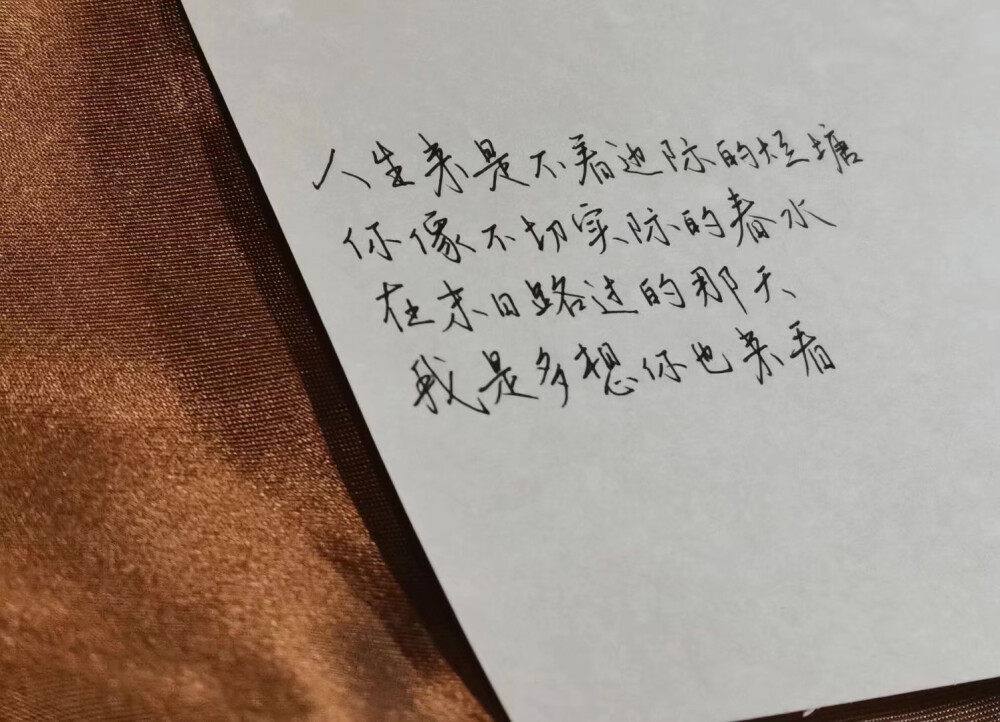 人生来是不着边际的烂塘
你像不切实际的春水
在末日路过的那天
我是多想你也来看